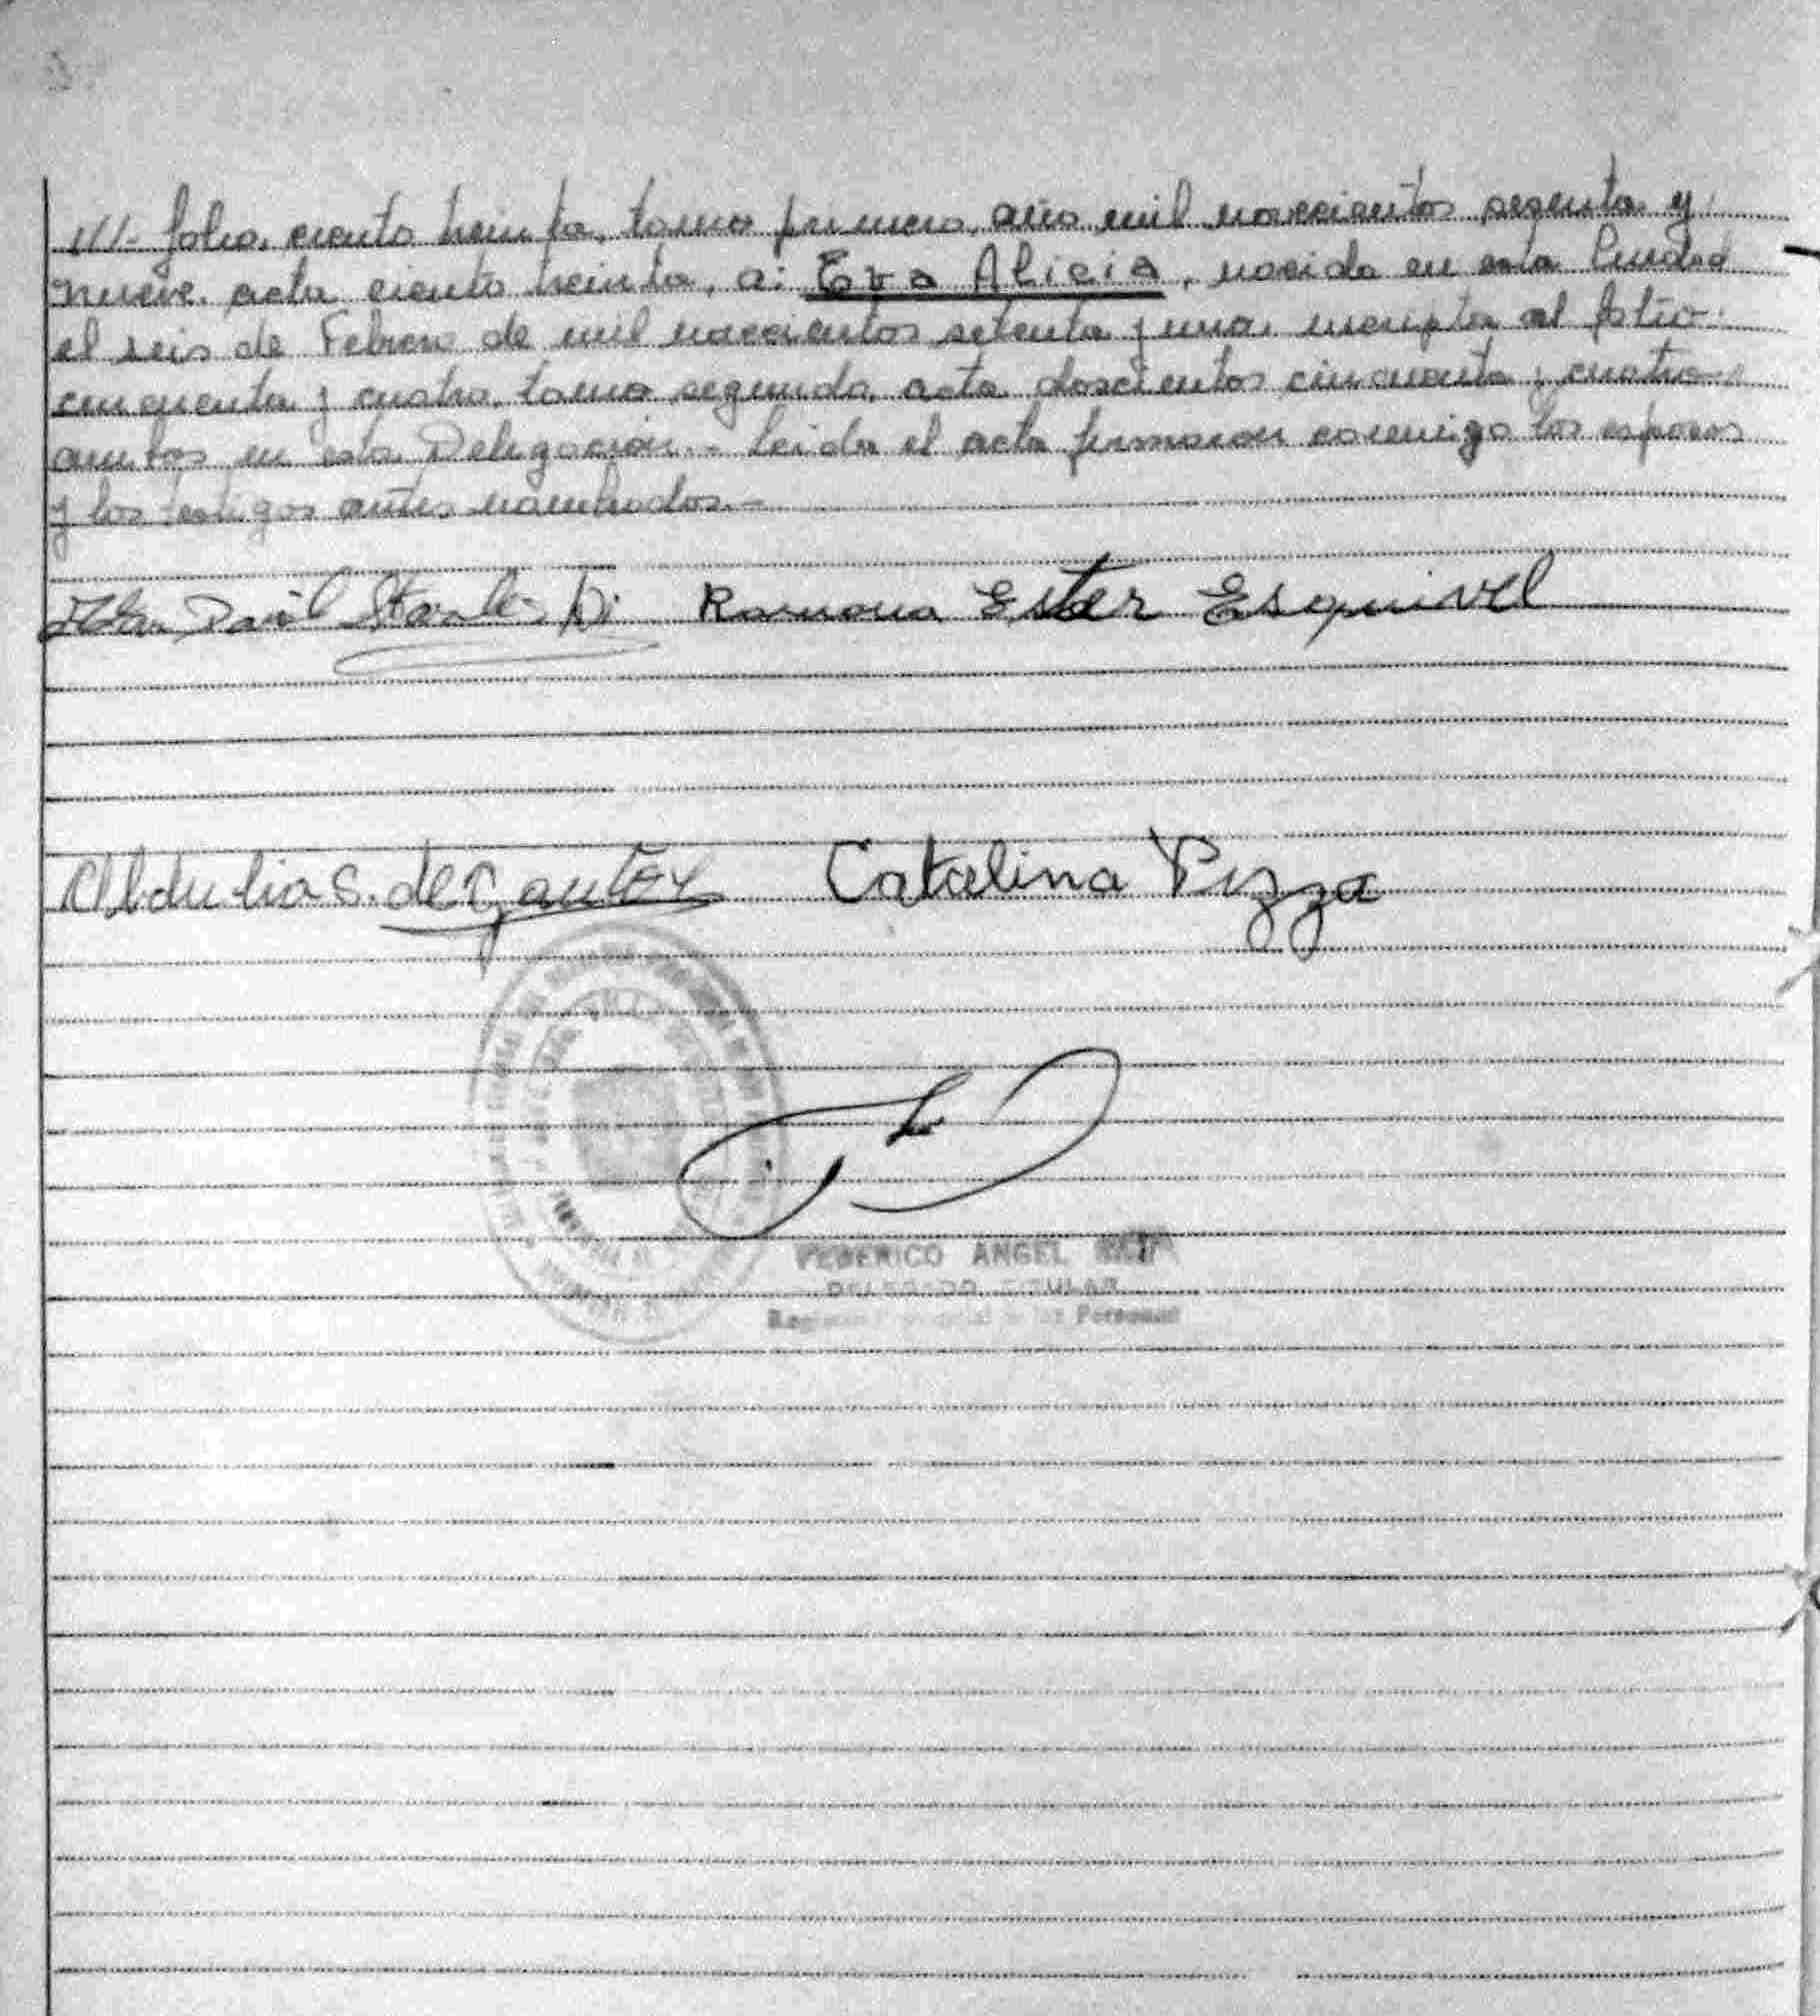 ///- folio, ciento treinta, tomo primero, año mil novecientos sesenta y
nueve, acta ciento treinta, a: Eva Alicia, nacida en esta Ciudad
el seis de Febrero de mil novecientos setenta y uno, inscripta al folio
cincuenta y cuatro, tomo segundo, acta doscientos cincuenta y cuatro
ambos en esta Delegación.- Leida el acta firmaron conmigo los esposos
y los testigos antes nombrados.-
Ramona Ester Esquivel
Obdulia S. de Gautey Catalina Pizza
FEDERICO ANGEL
DELEGADO TITULAR
Registro Provincial de las Personas